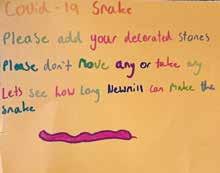 Covid-19 Snake
Please add your decorated stones
Please don't move any or take any
Lets see how long Newmill can make the
snake